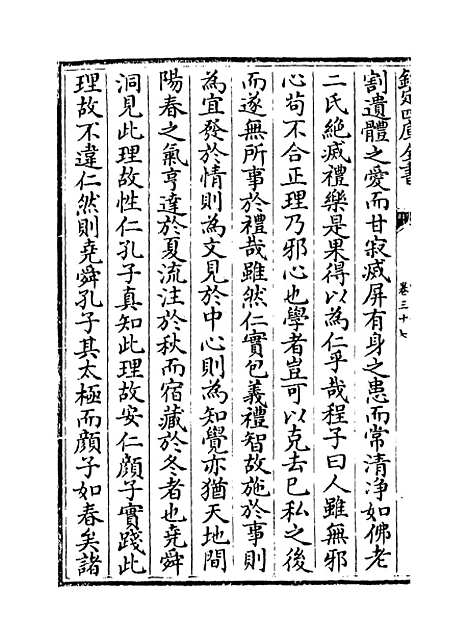 欽定四庫全書
卷三十七
割遺體之愛而甘寂滅屏有身之患而常清浄如佛老
二氏絶滅禮樂是果得以為仁乎哉程子曰人雖無邪
心茍不合正理乃邪心也學者豈可以克去已私之後
而遂無所事於禮哉雖然仁實包義禮智故施於事則
為宜發於情則為文見於中心則為知覺亦猶天地間
陽春之氣亨達於夏流注於秋而宿藏於冬者也堯舜
洞見此理故性仁孔子真知此理故安仁顔子實踐此
理故不違仁然則堯舜孔子其太極而顔子如春矣諸